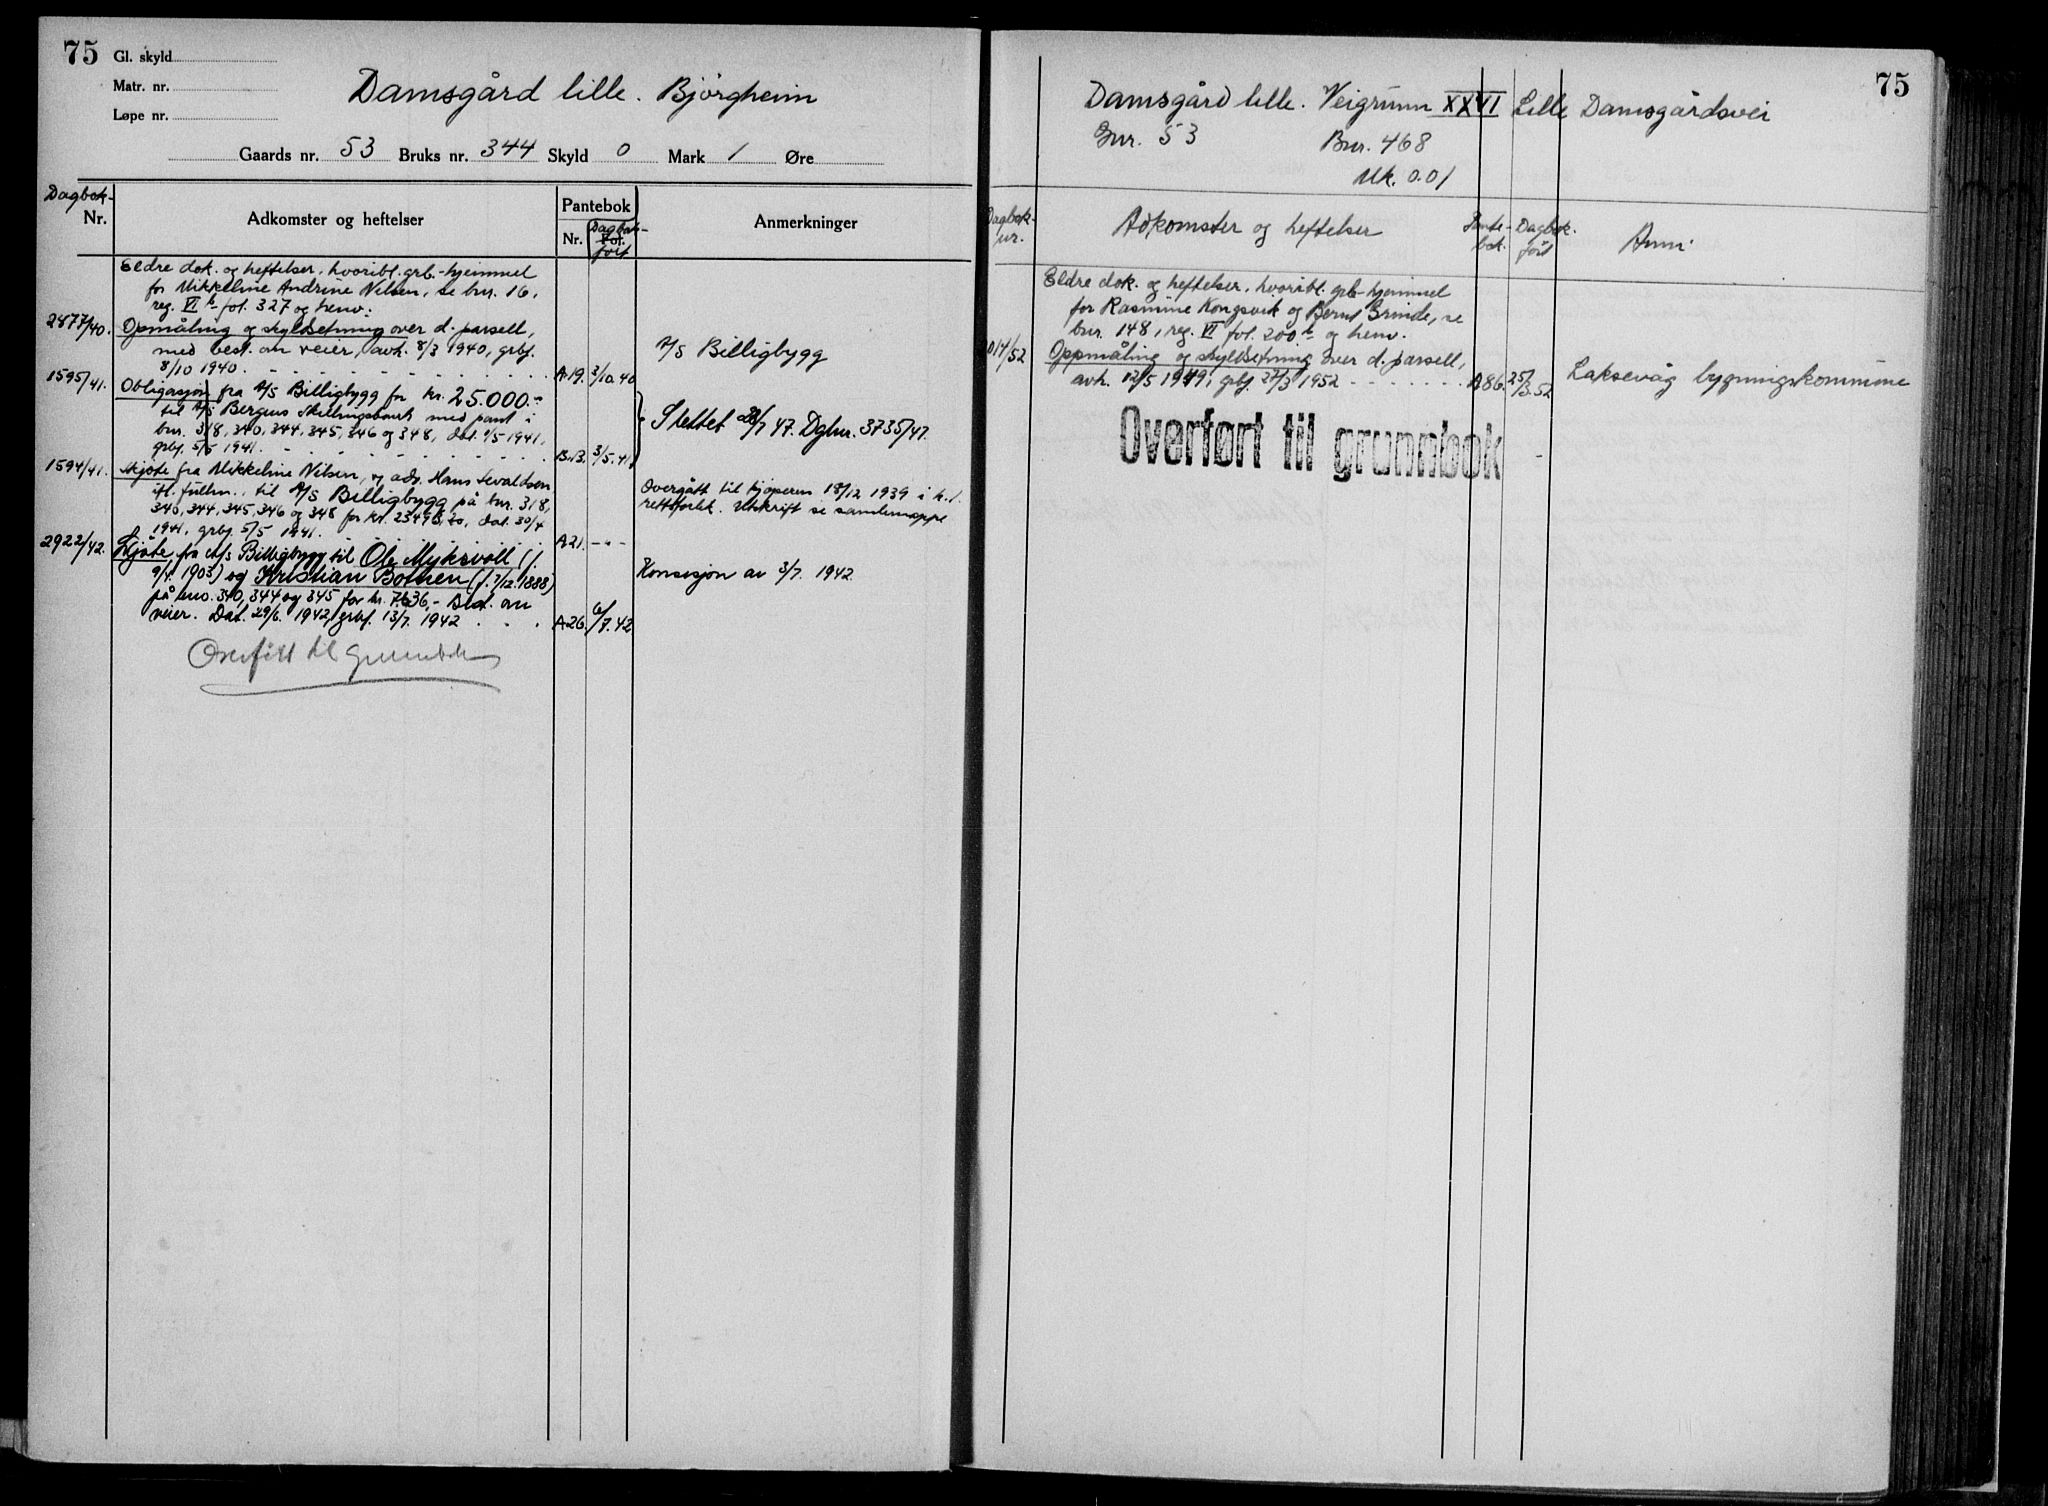 75
Gl. skyld
Matr. nr.
Løpe nr.
Damsgård lille. Bjørgheim
Gaards nr. 53 Bruks nr. 344 Skyld 0 Mark 1 Øre
Dagbok-
Nr.
Adkomster og heftelser
Pantebok
Nr.
Fol.
Dagbok-
ført
Anmerkninger
Eldre dok. og heftelser, hvoribl. grb.-hjemmel
for Mikkeline Andrine Nilsen, se bnr. 16,
reg. VI b fol. 327 og henv:
2877/40. Opmåling og skyldsetning over d. parsell,
med best. om veier, avh. 8/3 1940, grbf.
8/10 1940. A.19. 3/10.40
A/S Billigbygg
1595/41. Obligasjon fra A/S Billigbygg for kr. 25.000.-
til A/S Bergens Skillingsbank med pant i
bnr. 318, 340, 344, 345, 346 og 348, dat. 1/5 1941,
grbf. 5/5 1941. B.13. 3/5.41
Slettet 28/7 47. Dgbnr. 3735/47.
1594/41. Skjøte fra Mikkeline Nilsen, v/ adv. Hans
ifl. fullm., til A/S Billigbygg på bnr. 318,
340, 344, 345, 346 og 348 for kr. dat. 30/4
1941, grbf. 5/5 1941. A21. -"-
Overgått til kjøperen 18/12 1939 i h.t.
rettsforlik. Utskrift se samlemappe
2922/42. Skjøte fra A/s Billigbygg til Ole Myksvoll (f.
9/4. 1903) og Kristian Botnen (f. 7/12. 1888)
på bno. 340, 344 og 345 for kr. 7636,- Best. om
veier. Dat. 29/6. 1942, grbf. 13/7. 1942 A26. 6/7.42
Konsesjon av 3/7. 1942
Overført til grunnbok
75
Damsgård lille. Veigrunn XXVI Lille Damsgårdsvei
Gnr. 53 Bnr. 468
Mk. 0.01
Dagbok-
nr.
Adkomster og heftelser
Pante-
bok.
Dagbok.
ført
Anm.
Eldre dok. og heftelser, hvoribl. grb-hjemmel
for Rasmine Kongsvik og Bernt Grinde, se
bnr. 148, reg. VI fol. 200 b og henv.
014/52 Oppmåling og skyldsetning over d. parsell,
avh. 12/5 1949, grbf. 27/3 1952 A86. 25/3.52
Laksevåg bygningskommune
Overført til grunnbok